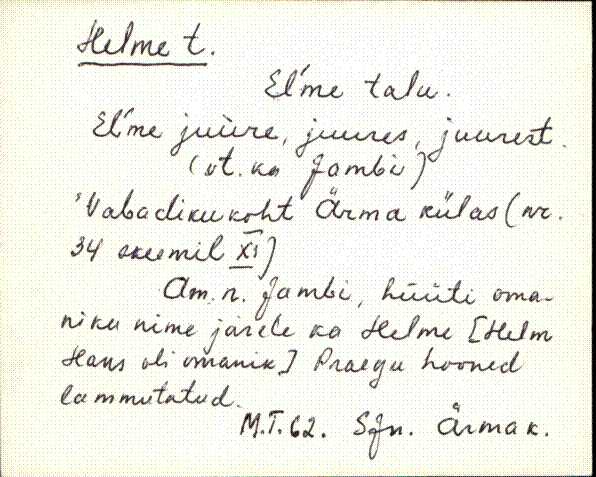 Helme t.
El'me talu.
El'me juure, juures, juurest.
(vt. ka Jambi)
"Vabadikukoht Ärma külas (nr.
34 skeemil XI)
Am. n. Jambi, hüüti oma-
niku nime järele ka Helme [Helm
Hans oli omanik] Praegu hooned
lammutatud.
M.T.62. Sjn. Ärma k.